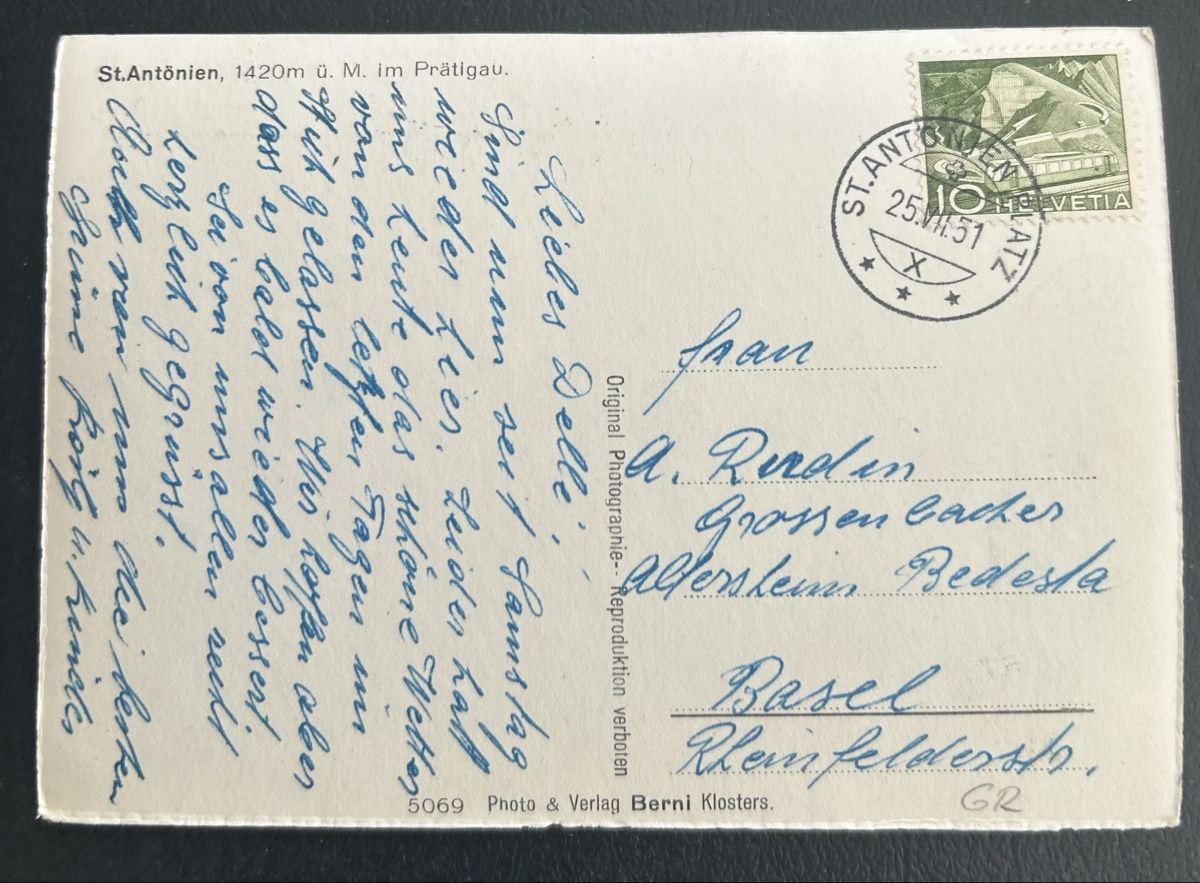 St.Antönien, 1420m ü. M. im Prätigau.
Liebes Delli!
Sind nun seit Samstag
wieder hier. Leider hat
uns heute das schöne Wetter
von den letzten Tagen im
Stich gelassen. Wir hoffen aber
dass es bald wieder bessert.
Sei von uns allen recht
herzlich gegrüsst.
Auch von mir die besten
Grüsse u. Kinder
Original Photographie-- Reproduktion verboten
5069 Photo & Verlag Berni Klosters.
HELVETIA
10
ST. ANTÖNIEN PLATZ
25.VII.51
X
Frau
A. Rudin
Grossenbacher
Altersheim Bedesta
Basel
Rheinfelderstr.
GR